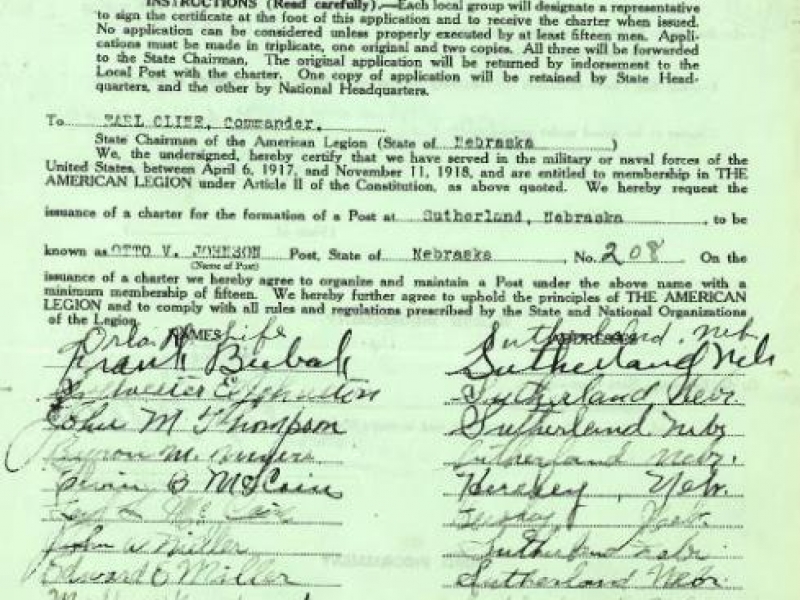 INSTRUCTIONS (Read carefully).—Each local group will designate a representative
to sign the certificate at the foot of this application and to receive the charter when issued.
No application can be considered unless properly executed by at least fifteen men. Appli-
cations must be made in triplicate, one original and two copies. All three will be forwarded
to the State Chairman. The original application will be returned by indorsement to the
Local Post with the charter. One copy of application will be retained by State Head-
quarters, and the other by National Headquarters.
To EARL CLINE, Commander,
State Chairman of the American Legion (State of Nebraska )
We, the undersigned, hereby certify that we have served in the military or naval forces of the
United States, between April 6, 1917, and November 11, 1918, and are entitled to membership in THE
AMERICAN LEGION under Article II of the Constitution, as above quoted. We hereby request the
issuance of a charter for the formation of a Post at Sutherland, Nebraska , to be
known as OTTO V. JOHNSON Post, State of Nebraska , No. 208 On the
(Name of Post)
issuance of a charter we hereby agree to organize and maintain a Post under the above name with a
minimum membership of fifteen. We hereby further agree to uphold the principles of THE AMERICAN
LEGION and to comply with all rules and regulations prescribed by the State and National Organizations
of the Legion.
NAMES ADDRESSES
Sutherland, Neb.
Frank Bubak Sutherland Neb
Sutherland Nebr.
John M Thompson Sutherland Nebr
Myers Sutherland Nebr.
B McCain Hershey, Nebr.
Mc Cain Hershey Nebr.
John W Miller Sutherland Nebr
Edward C Miller Sutherland Nebr.